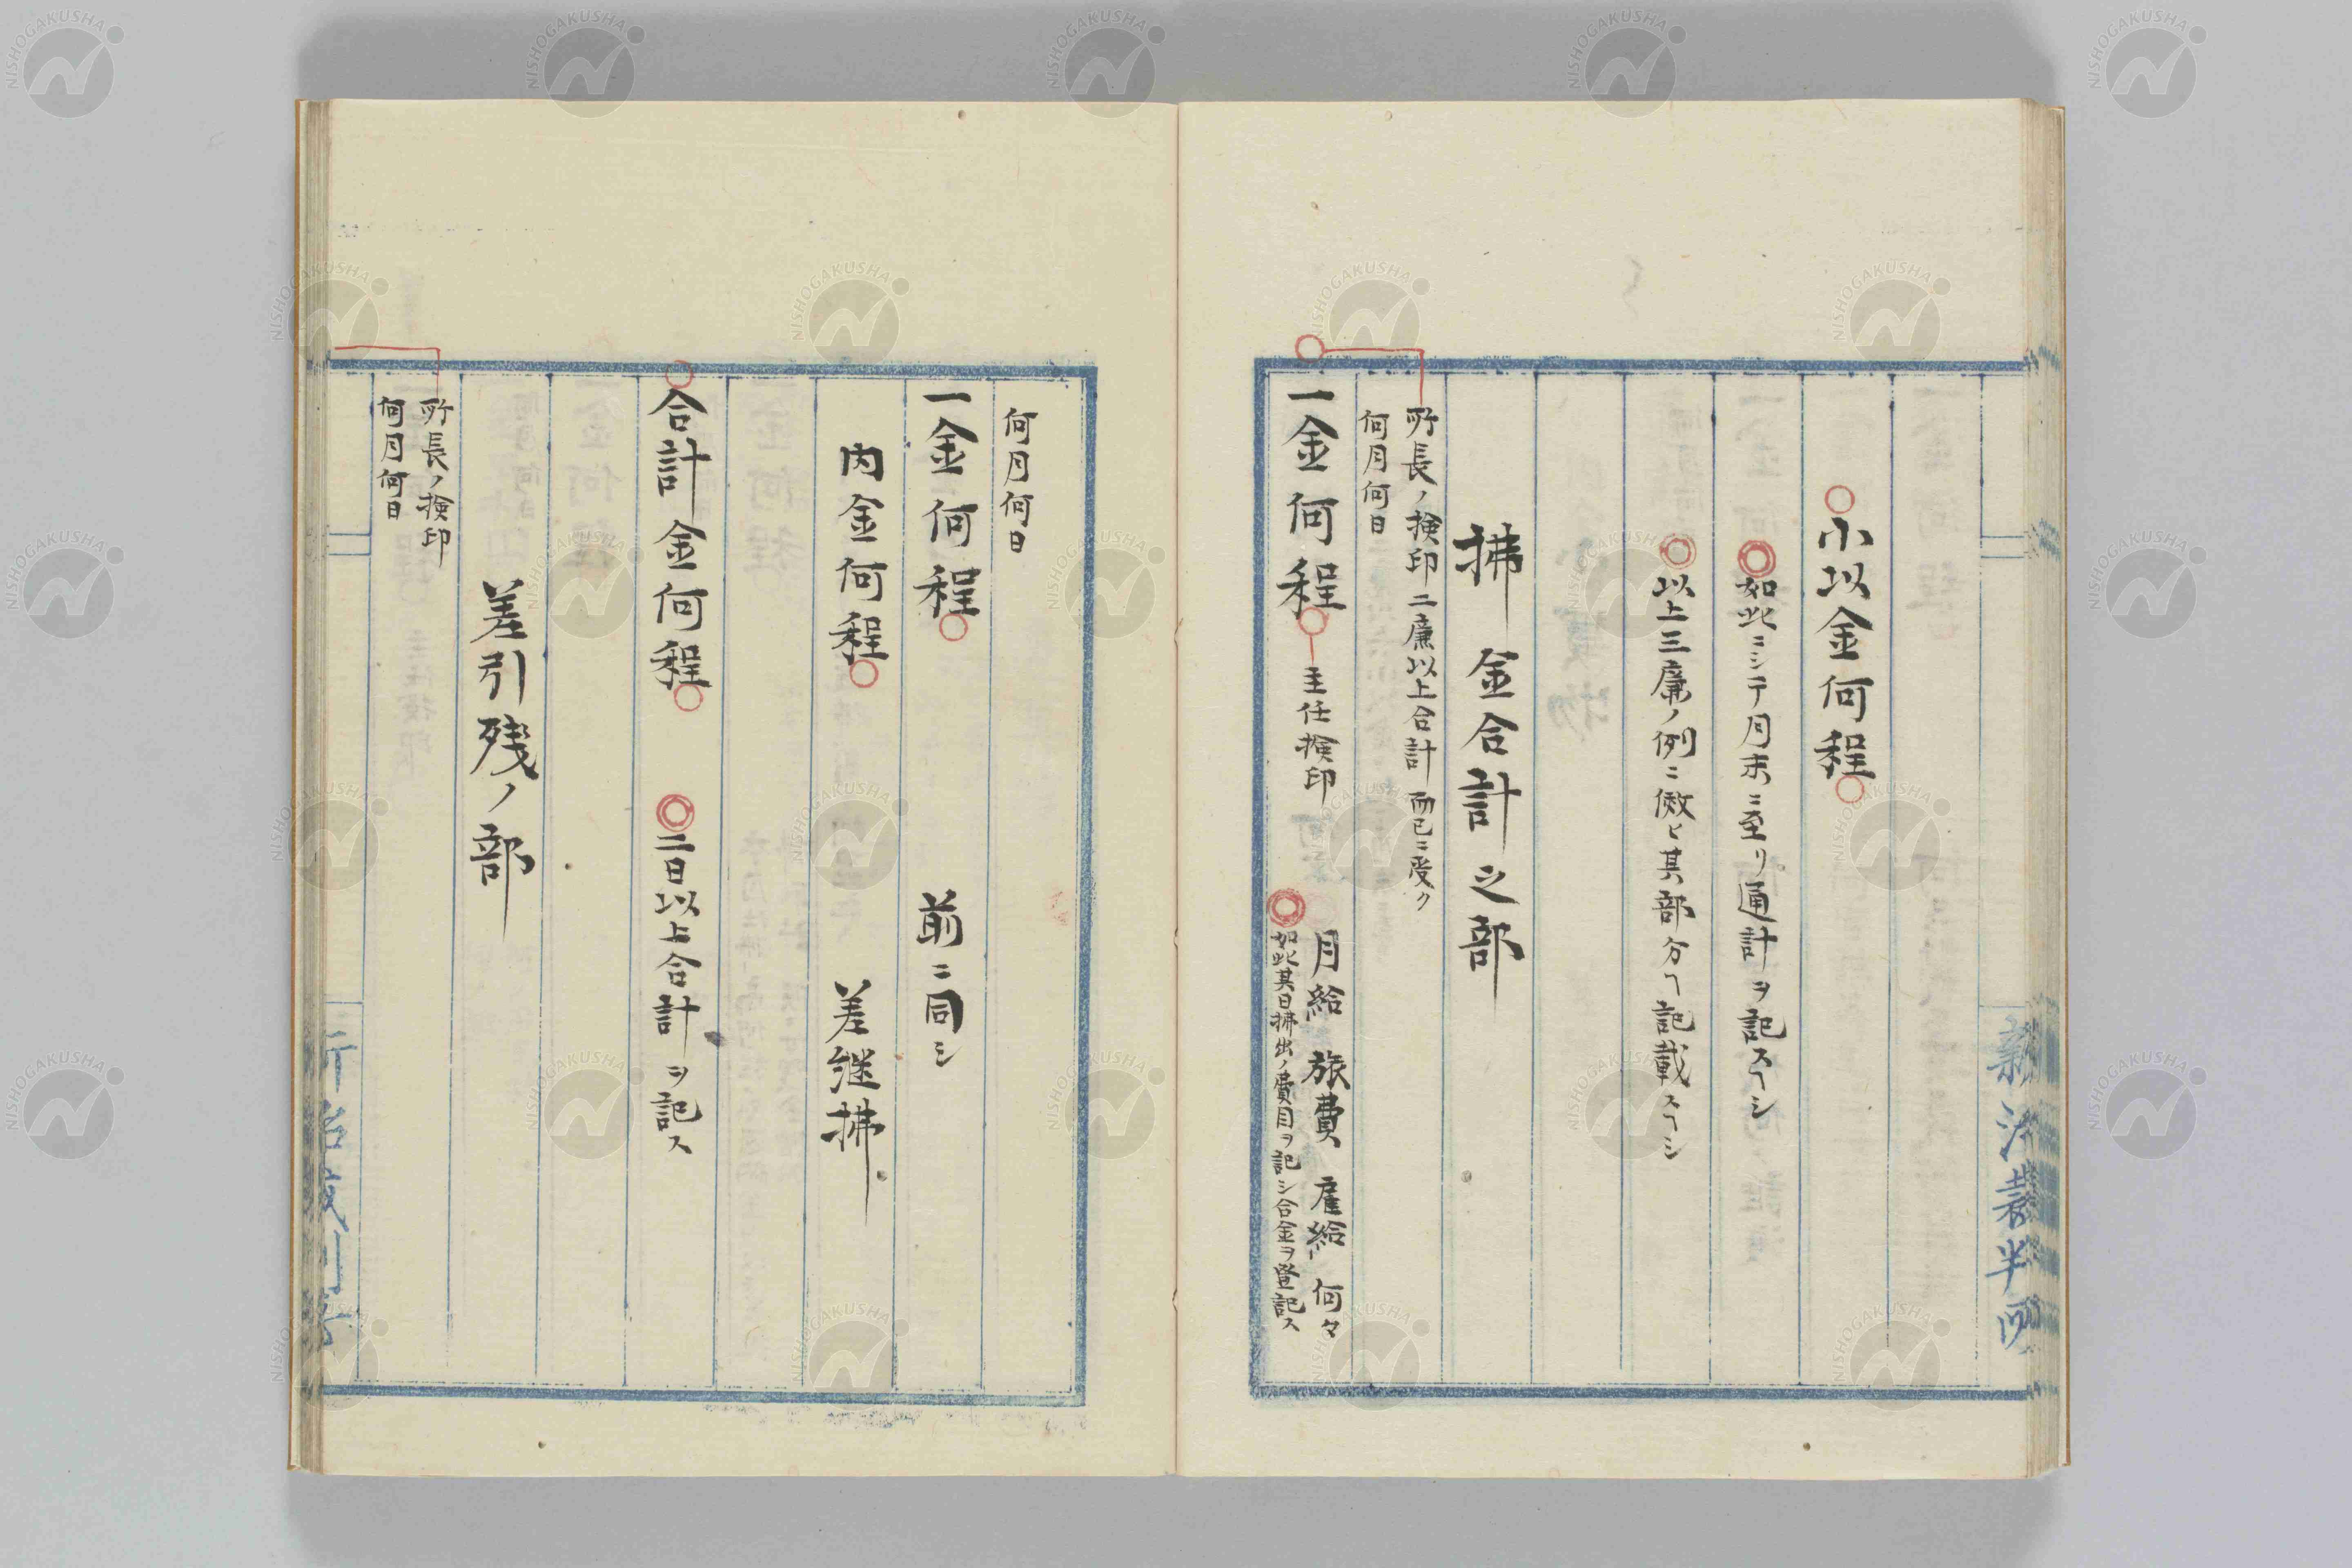 小以金何程
如此ニシテ月末ニ至リ通計ヲ記スヘシ
以上三廉ノ例ニ傚ヒ其部分ヘ記載スヘシ
拂金合計之部
所長ノ検印二廉以上合計而已ニ受ク
何月何日
一金何程 主任検印 月給 旅費 雇給 何々
如此其日拂出ノ費目ヲ記シ合金ヲ登記ス
何月何日
一金何程 前ニ同シ
内金何程 差継拂
合計金何程 二日以上合計ヲ記ス
差引残ノ部
所長ノ検印
何月何日
NISHOGAKUSHA